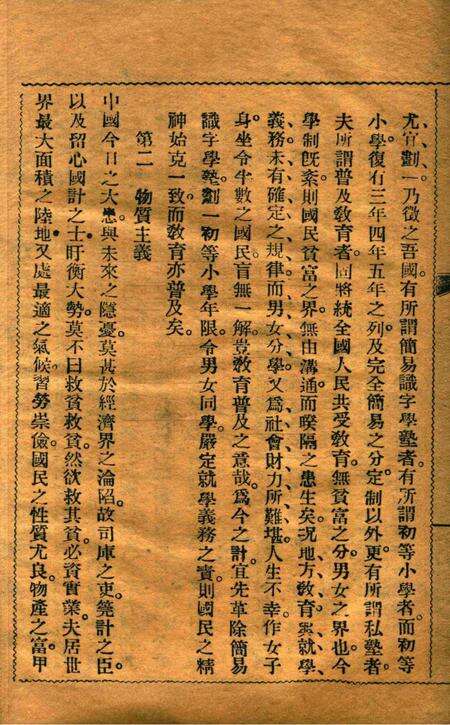 尤宜劃一乃徵之吾國。有所謂簡易識字學塾者。有所謂初等小學者。而初等
小學復有三年四年五年之列。及完全簡易之分。定制以外。更有所謂私塾者。
夫所謂普及教育者。固將統全國人民共受教育。無貧富之分。男女之界也。今
學制旣紊。則國民貧富之界。無由溝通。而暌隔之患生矣。况地方教育與就學
義務。未有確定之規律。而男女分學。又爲社會財力所難堪。人生不幸。作女子
身。坐令半數之國民。盲無一解。豈教育普及之意哉。爲今之計。宜先革除簡易
識字學塾。劃一初等小學年限。令男女同學。嚴定就學義務之責。則國民之精
神始克一致。而教育亦普及矣。
第二　物質主義
中國今日之大患。與未來之隱憂。莫甚於經濟界之淪陷。故司庫之吏。筦計之臣。
以及留心國計之士。盱衡大勢。莫不曰救貧救貧。然欲救其貧。必資實業。夫居世
界最大面積之陸地。又處最適之氣候。習勞崇儉。國民之性質尤良。物產之富。甲